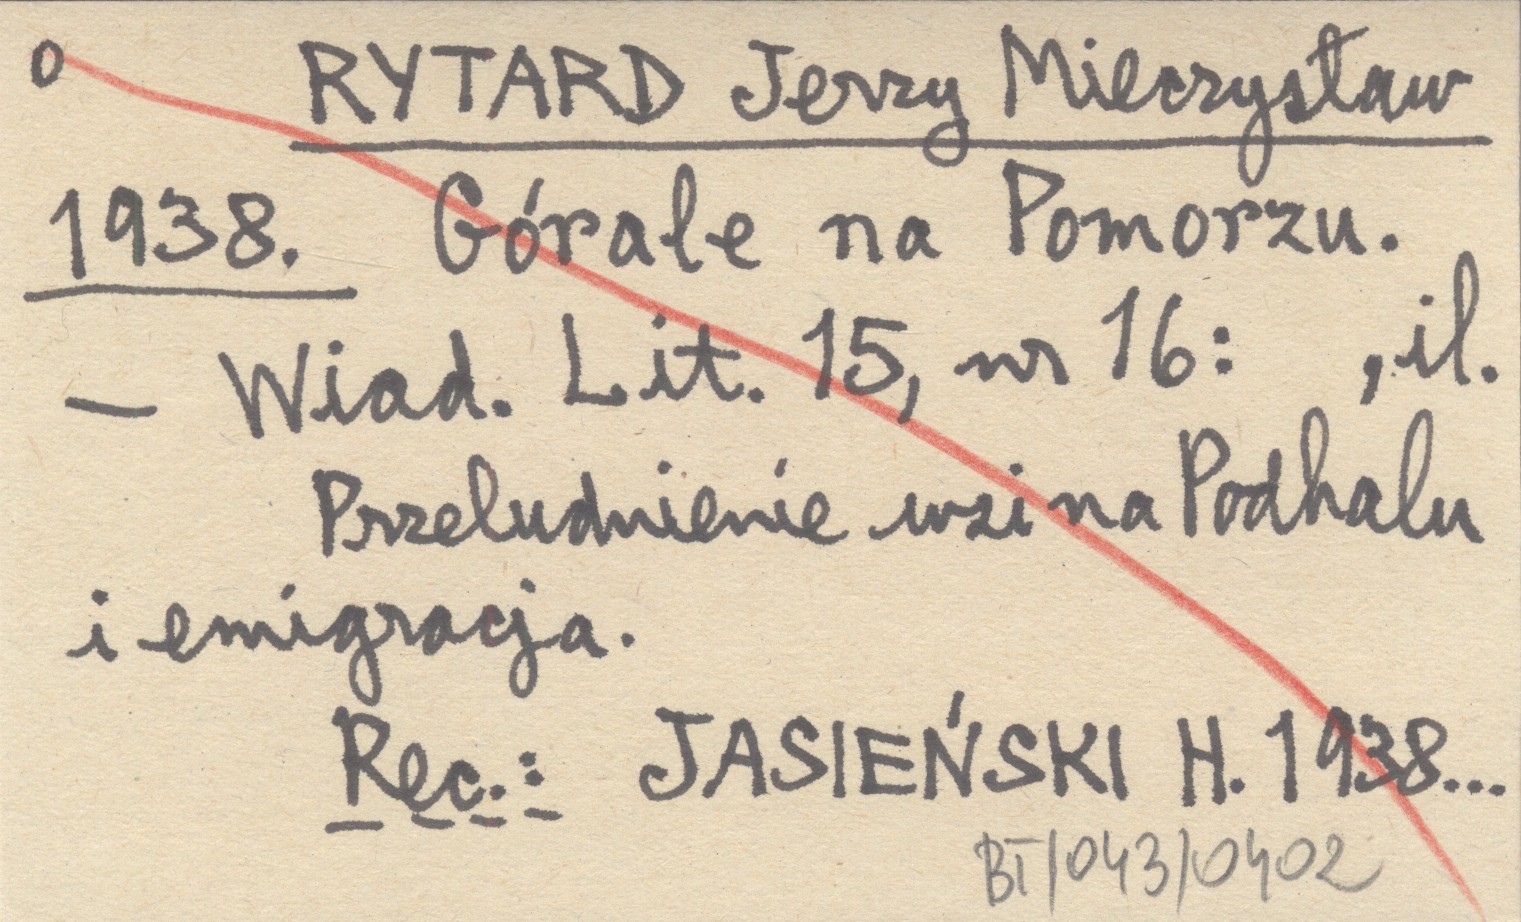 o RYTARD Jerzy Mieczysław
1938. Górale na Pomorzu.
— Wiad. Lit. 15, nr 16: , il.
Przeludnienie wsi na Podhalu
i emigracja.
Rec.: JASIEŃSKI H. 1938...
BT/043/0402